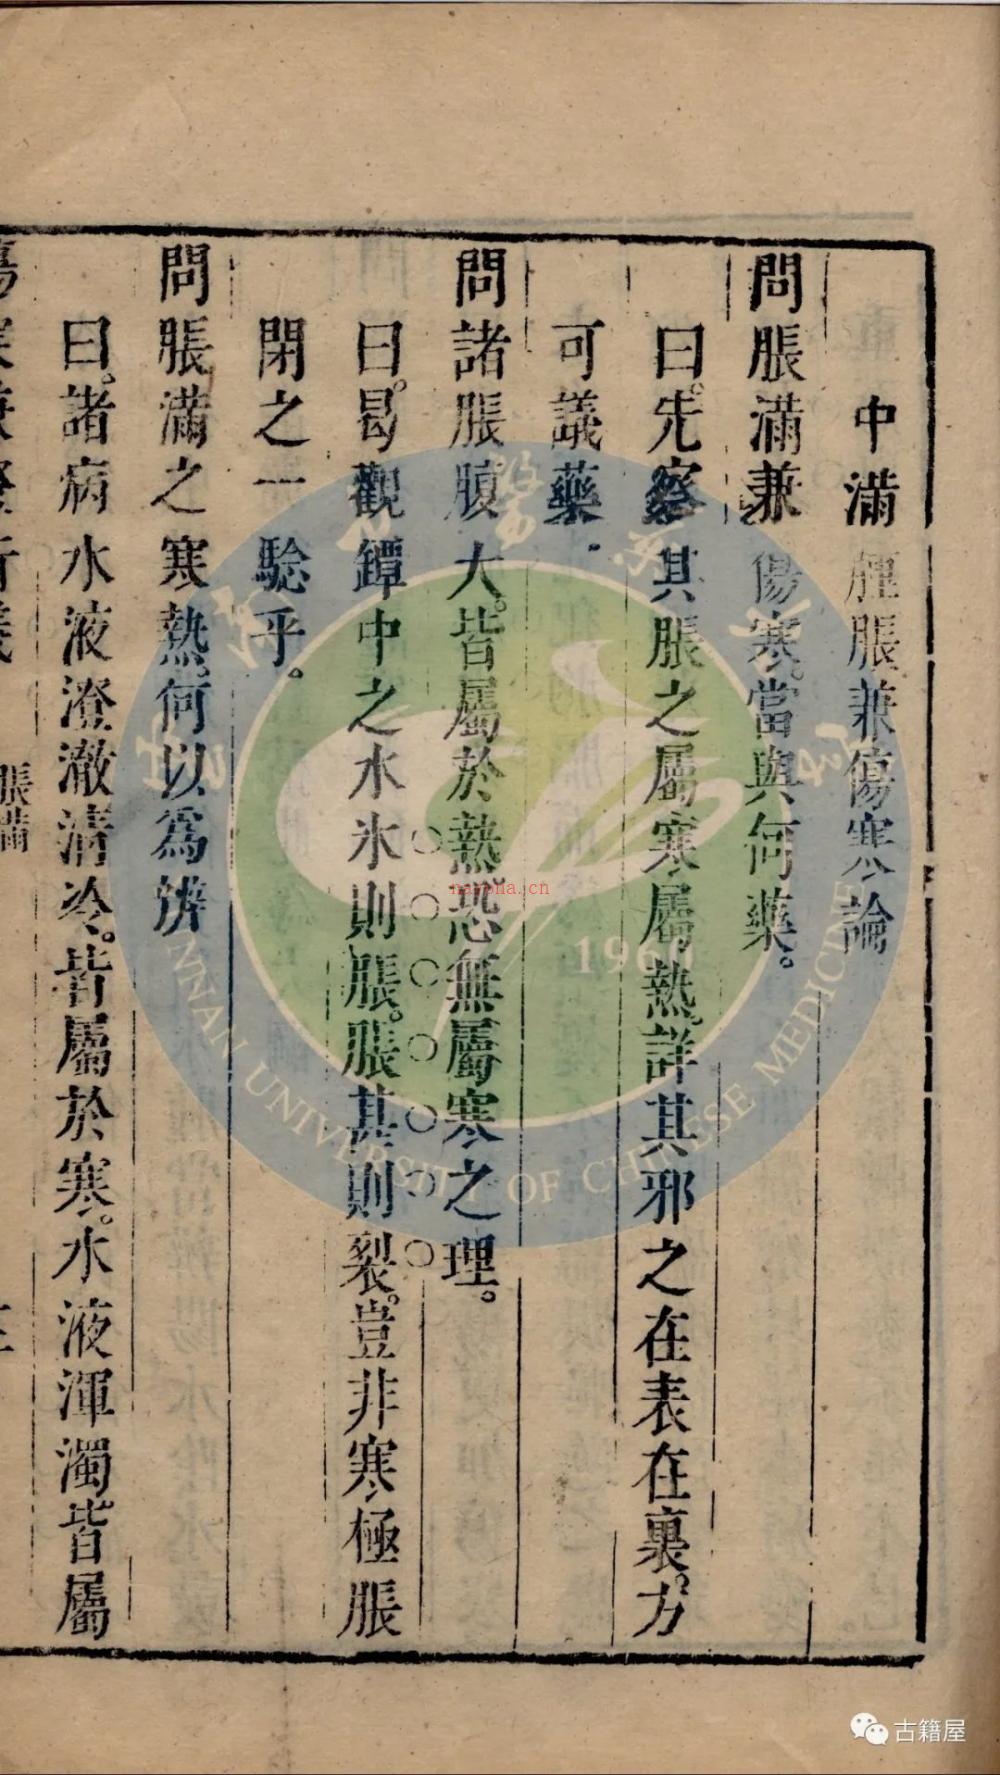 中滿腫脹兼傷寒論
問脹滿兼傷寒。當與何藥。
曰。先察其脹之屬寒屬熱。詳其邪之在表在裏。方
可議藥。
問諸脹腹大。皆屬於熱。恐無屬寒之理。
曰。曷觀鐔中之水。氷則脹。脹甚則裂。豈非寒極脹
閉之一驗乎。
問脹滿之寒熱。何以爲辨
曰。諸病水液澄澈清冷。皆屬於寒。水液渾濁。皆屬
脹滿
1960
UNIVERSITY OF CHINESE MEDICINE
nayona.cn
古籍屋